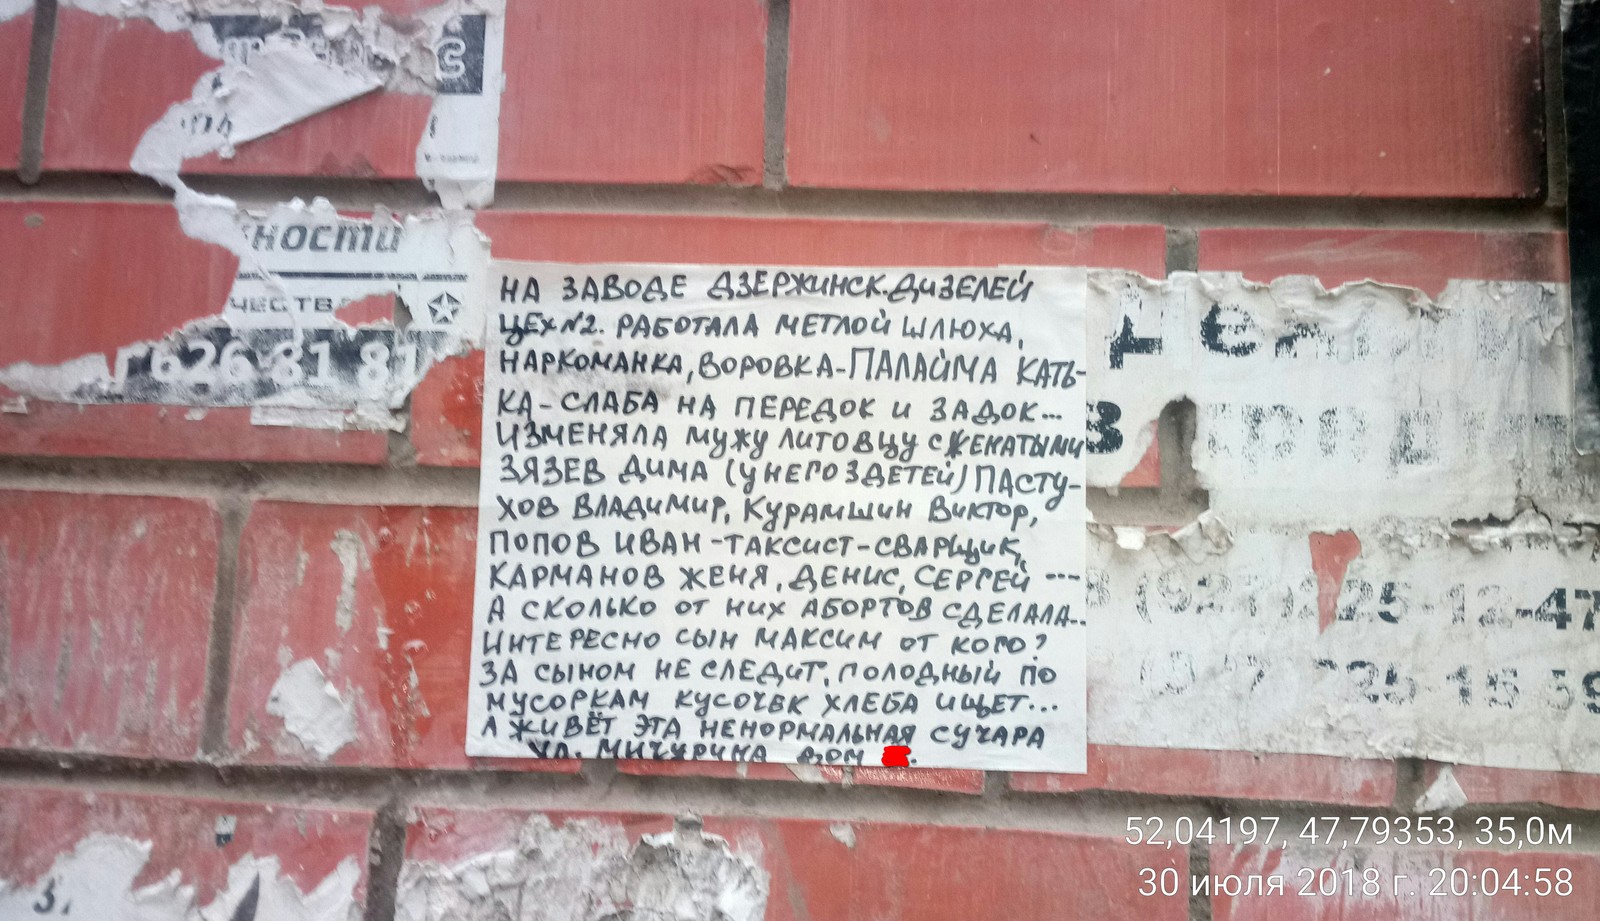 С
ности
ЧЕСТВА
626 81 81
НА ЗАВОДЕ ДЗЕРЖИНСК.ДИЗЕЛЕЙ
ЦЕХ№2. РАБОТАЛА МЕТЛОЙ ШЛЮХА,
НАРКОМАНКА, ВОРОВКА-ПАЛАЙМА КАТЬ-
КА-СЛАБА НА ПЕРЕДОК И ЗАДОК...
ИЗМЕНЯЛА МУЖУ ЛИТОВЦУ С ЖЕНАТЫМИ
ЗЯЗЕВ ДИМА (У НЕГО 3 ДЕТЕЙ) ПАСТУ-
ХОВ ВЛАДИМИР, КУРАМШИН ВИКТОР,
ПОПОВ ИВАН-ТАКСИСТ-СВАРЩИК,
КАРМАНОВ ЖЕНЯ, ДЕНИС, СЕРГЕЙ ---
А СКОЛЬКО ОТ НИХ АБОРТОВ СДЕЛАЛА..
ИНТЕРЕСНО СЫН МАКСИМ ОТ КОГО?
ЗА СЫНОМ НЕ СЛЕДИТ, ГОЛОДНЫЙ ПО
МУСОРКАМ КУСОЧЕК ХЛЕБА ИЩЕТ...
А ЖИВЁТ ЭТА НЕНОРМАЛЬНАЯ СУЧАРА
УЛ. МИЧУРИНА ДОМ
25-12-47
52,04197, 47,79353, 35,0м
30 июля 2018 г. 20:04:58